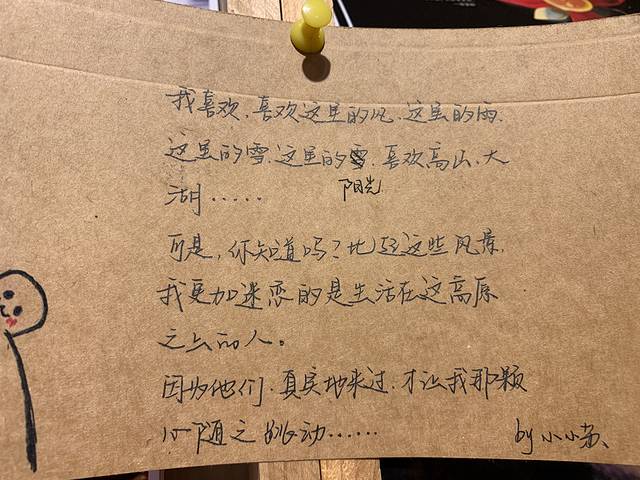 我喜欢.喜欢这里的风.这里的雨.
这里的雪.这里的雪.喜欢高山、大
阳光
湖……
可是,你知道吗?比起这些风景.
我更加迷恋的是生活在这高原
之上的人。
因为他们.真实地来过.才让我那颗
心随之跳动……
by小小苏、